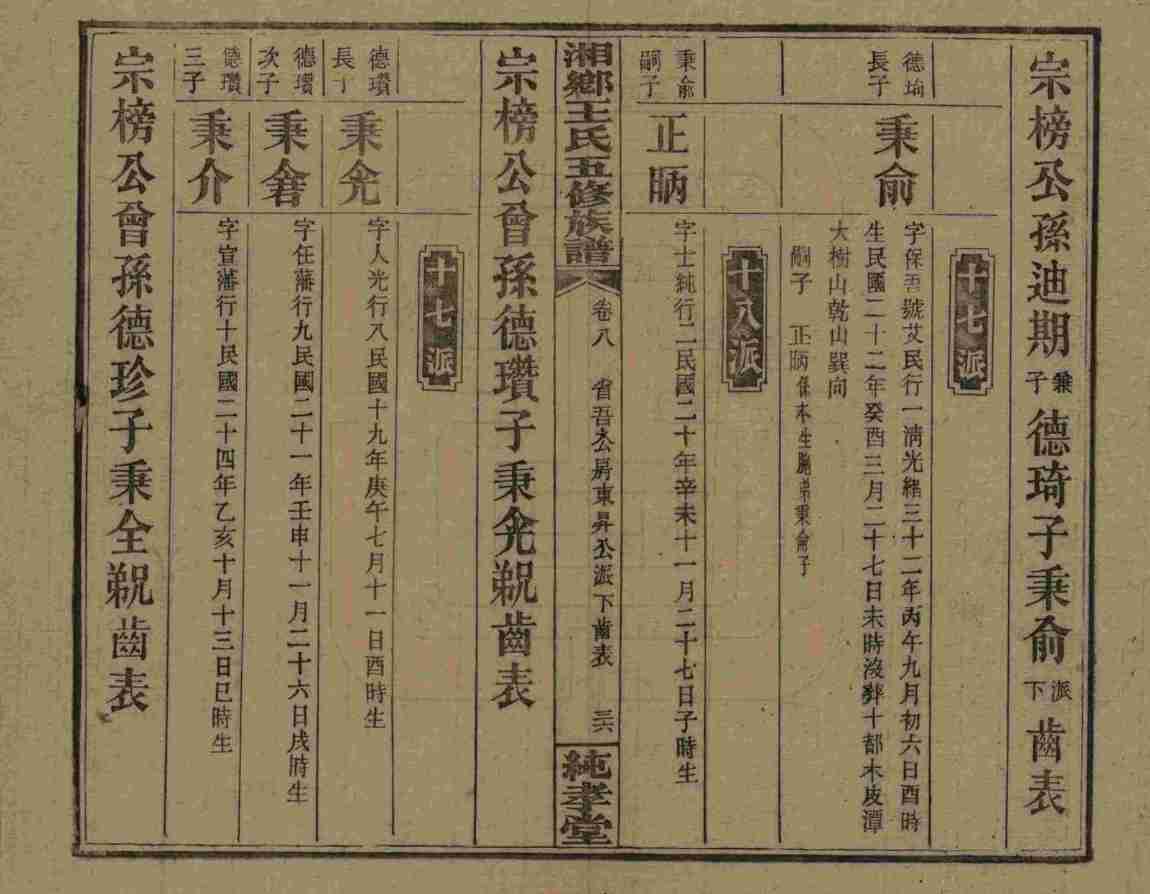 宗榜公孫迪期兼子德琦子秉俞派下齒表
十七派
德琦長子
秉俞
字保吾號艾民行一清光緒三十二年丙午九月初六日酉時
生民國二十二年癸酉三月二十七日未時沒葬十都木皮潭
大樹山乾山巽向
嗣子 正昞係本生胞弟秉侖子
十八派
秉俞嗣子
正昞
字士純行二民國二十年辛未十一月二十七日子時生
湘鄉王氏五修族譜
卷八 省吾公房東昇公派下齒表 三六
純孝堂
宗榜公曾孫德瓚子秉光覜齒表
十七派
德瓚長子
秉光
字人光行八民國十九年庚午七月十一日酉時生
德瓚次子
秉
字任藩行九民國二十一年壬申十一月二十六日戌時生
德瓚三子
秉介
字宣藩行十民國二十四年乙亥十月十三日巳時生
宗榜公曾孫德珍子秉全覜齒表